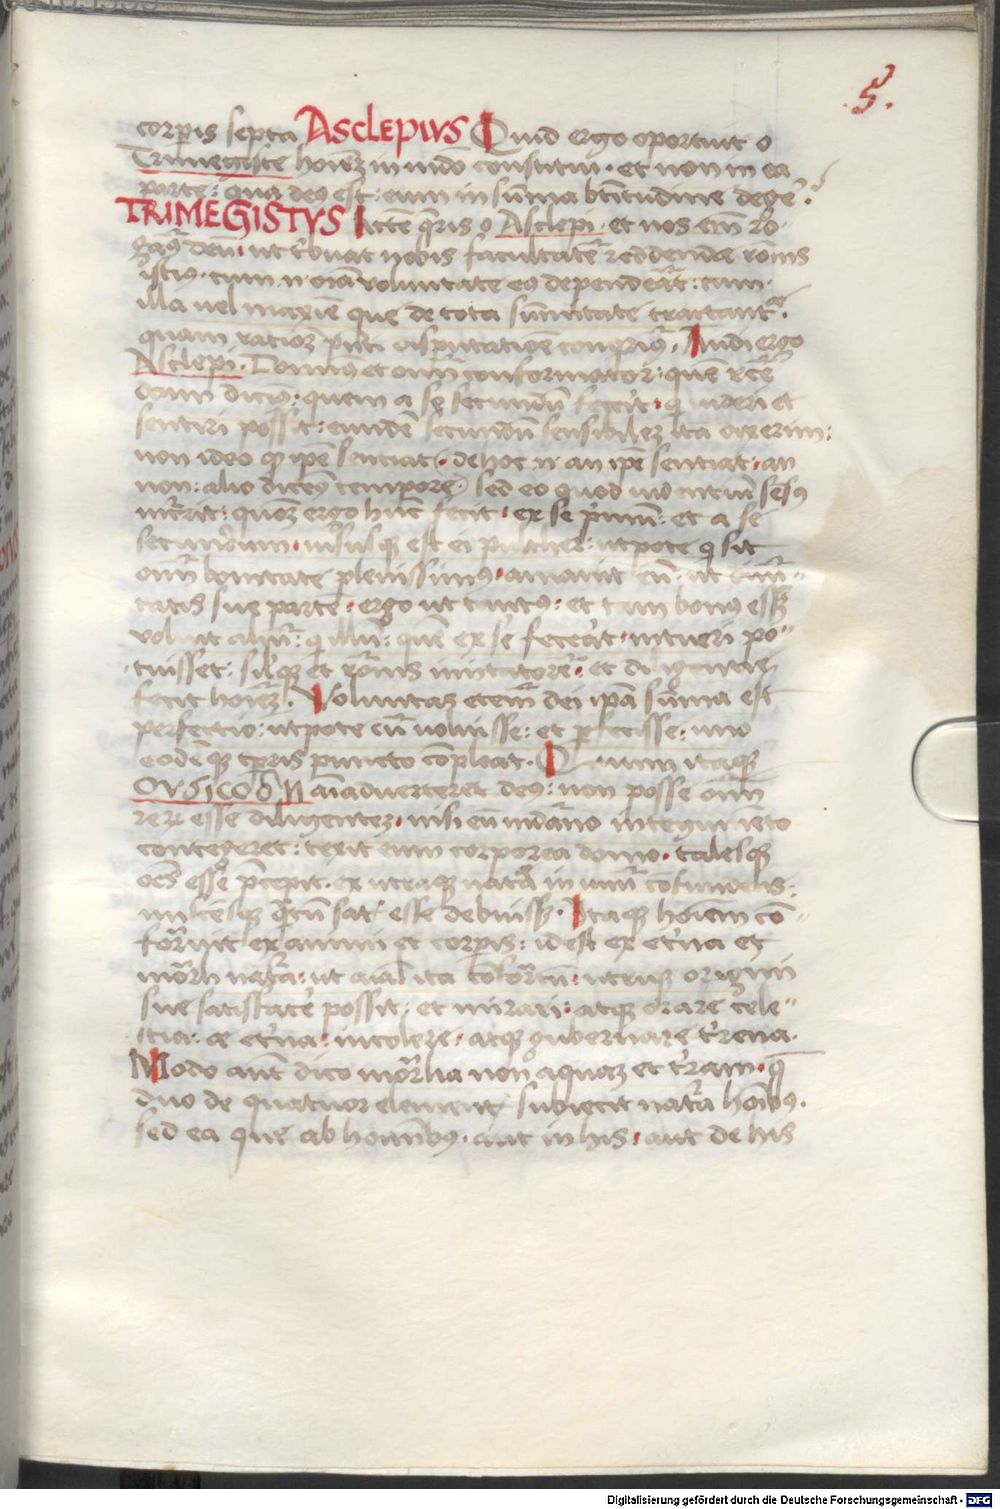 5.
corpis septa Asclepius Quid ergo oportuit o
Trimegiste hoiez in mdo constitui · et non in ea
parte: qua deus est: eum in suma btitudine degeˀ.
TRIMEGISTVS Recte qris o Asclepi · et nos em ro-
gamꝰ deu · ut tbuat nobis facultate reddende ronis
istiꝰ · cum n oia voluntate eiꝰ dependeat: tum ·
illa vel maxie que de tota sumitate tractantr.
quam ratioez pnti disputatioe conqrimꝰ. Audi ergo
Asclepi. Dominꝰ et oim conformator: que recte
deum dicimꝰ: quem a se secundum fecerit · qui videri et
sentiri possit: eunde secundum sensibilez ita dixerim:
non ideo qp ipe sentiat · de hoc n an ipe sentiat · an
non: alio dicemꝰ tempore sed eo quod videntium sesus
incurrit: quoz ergo hunc fecit · ex se primu: et a se
secundum · visusqz est ei pulcher: utpote qui sit
oim bonitate plenissimꝰ · amavit eu · ut divini-
tatis sue parte · ergo ut tantus: et tam bonus esset
voluit aliu: q illu: que ex se fecerat · intueri po-
tuisset: silqz et ronis imitatore: et diligentie
fecit hoiez. Voluntas etem dei ipa suma est
perfectio: utpote cu voluisse: et pfecisse: uno
eodeqz tpris puncto compleat. Quum itaqz
OVSICODN aiadverteret deus: non posse oim
reru esse diligentez · nisi eu mudano integumeto
contegeret: texit eum corporea domo · talesqz
oes esse pcepit · ex utraqz natura in unu confundens:
miscesqz qtu satis esse debuisset. Itaqz hoiem co-
format ex animi et corpis: id est ex eterna et
mortali natura: ut aial ita conformatu · utriqz origini
sue satisfacere possit: et mirari: atqz orare cele-
stia: ac eterna: incolere · atqz gubernare terrena.
Modo aut dico mortalia non aquaz et terram · que
duo de quatuor elementis subiecit natura hoibus.
sed ea que ab hominibus · aut in his · aut de his
Digitalisierung gefördert durch die Deutsche Forschungsgemeinschaft - DFG